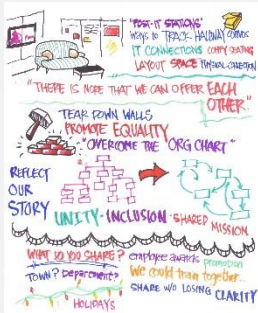 "POST-IT STATIONS"
WAYS to TRACK HALLWAY CONVOS
IT CONNECTIONS COMFY SEATING
LAYOUT SPACE PHYSICAL CONNECTION
"THERE IS HOPE THAT WE CAN OFFER EACH
OTHER"
TEAR DOWN WALLS
PROMOTE EQUALITY
"OVERCOME THE "ORG CHART"
REFLECT
OUR
STORY
UNITY · INCLUSION · SHARED
MISSION
WHAT DO YOU SHARE?
TOWN? Department?
HOLIDAYS
employee awards promotion
We could train together...
SHARE W/O LOSING CLARITY